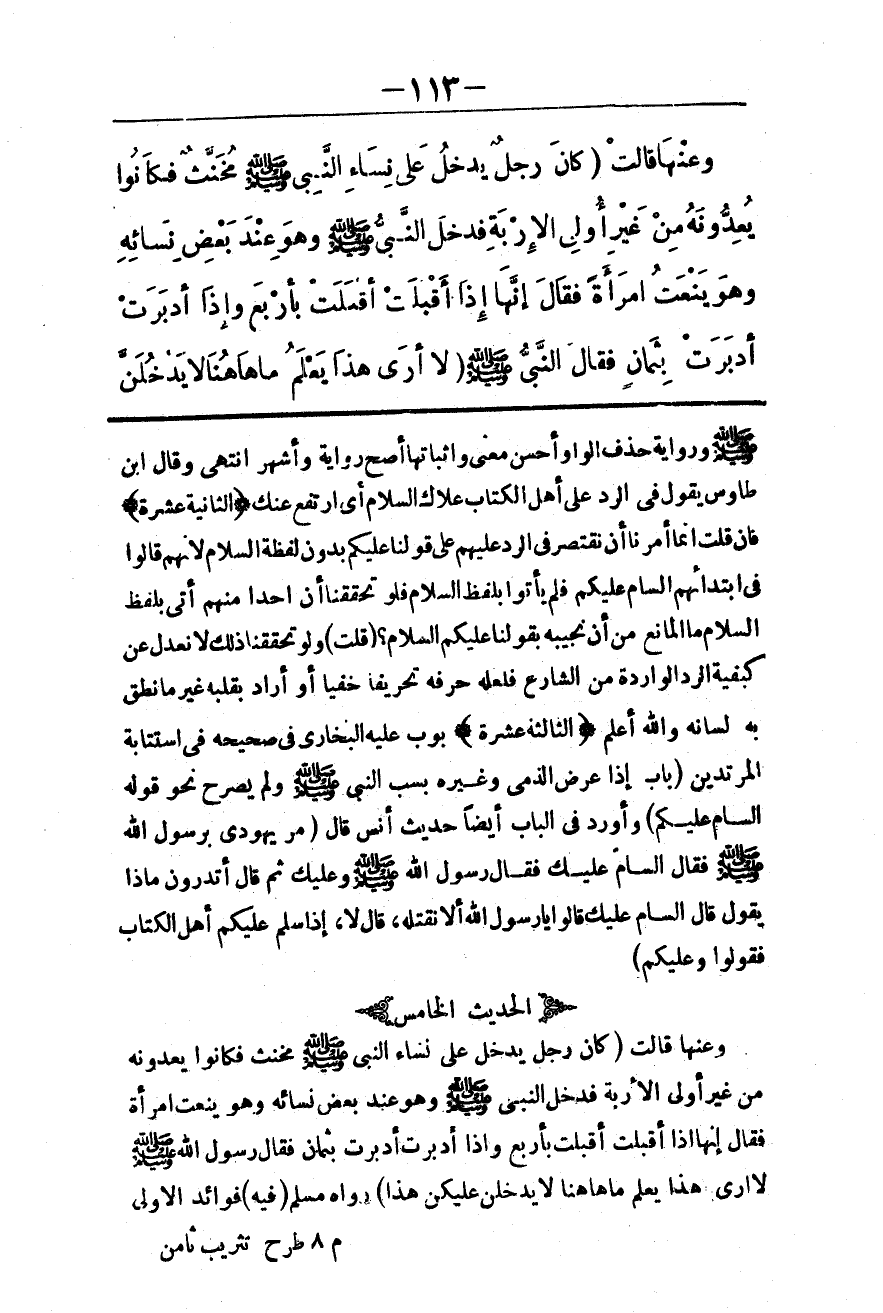 -١١٣-
وعنْهَا قالتْ ( كانَ رجلٌ يدخلُ عَلَى نِسَاءِ النَّبِى ﷺ مُخَنَّثٌ فكَانُوا
يُعِدُّونَهُ مِنْ غَيْرِ أُولِى الإِرْبَةِ فدخلَ النَّبىُّ ﷺ وهوَ عِنْدَ بَعْضِ نِسَائِهِ
وهوَ يَنْعَتُ امرَأَةً فقالَ إِنَّهَا إِذَا أَقْبَلَتْ أقبلَتْ بأرْبَعَ وإِذَا أدبَرَتْ
أدبَرَتْ بِثَمَانٍ فقالَ النَّبىُّ ﷺ ( لا أرَى هذا يَعْلَمُ ما هَاهُنَا لا يَدْخُلَنَّ
ﷺ ورواية حذف الواو أحسن معنى واثباتها أصح رواية وأشهر انتهى وقال ابن
طاوس يقول فى الرد على أهل الكتاب علاك السلام أى ارتفع عنك ﴿الثانية عشرة﴾
فان قلت انما أمرنا أن نقتصر فى الرد عليهم على قولنا عليكم بدون لفظة السلام لانهم قالوا
فى ابتدائهم السام عليكم فلم يأتوا بلفظ السلام فلو تحققنا أن احدا منهم أتى بلفظ
السلام ما المانع من أن نجيبه بقولنا عليكم السلام؟ (قلت) ولو تحققنا ذلك لا نعدل عن
كيفية الرد الواردة من الشارع فلعله حرفه تحريفا خفيا أو أراد بقلبه غير ما نطق
به لسانه والله أعلم ﴿الثالثة عشرة﴾ بوب عليه البخارى فى صحيحه فى استتابة
المرتدين (باب إذا عرض الذمى وغيره بسب النبى ﷺ ولم يصرح نحو قوله
السام عليكم) وأورد فى الباب أيضاً حديث أنس قال ( مر يهودى برسول الله
ﷺ فقال السام عليك فقال رسول الله ﷺ وعليك ثم قال أتدرون ماذا
يقول قال السام عليك قالوا يا رسول الله ألا نقتله، قال لا، إذا سلم عليكم أهل الكتاب
فقولوا وعليكم)
الحديث الخامس
وعنها قالت ( كان رجل يدخل على نساء النبى ﷺ مخنث فكانوا يعدونه
من غير أولى الأربة فدخل النبى ﷺ وهو عند بعض نسائه وهو ينعت امرأة
فقال إنها اذا أقبلت أقبلت بأربع واذا أدبرت أدبرت بثمان فقال رسول الله ﷺ
لا ارى هذا يعلم ما هاهنا لا يدخلن عليكن هذا ) رواه مسلم (فيه) فوائد الاولى
م ٨ طرح تثريب ثامن